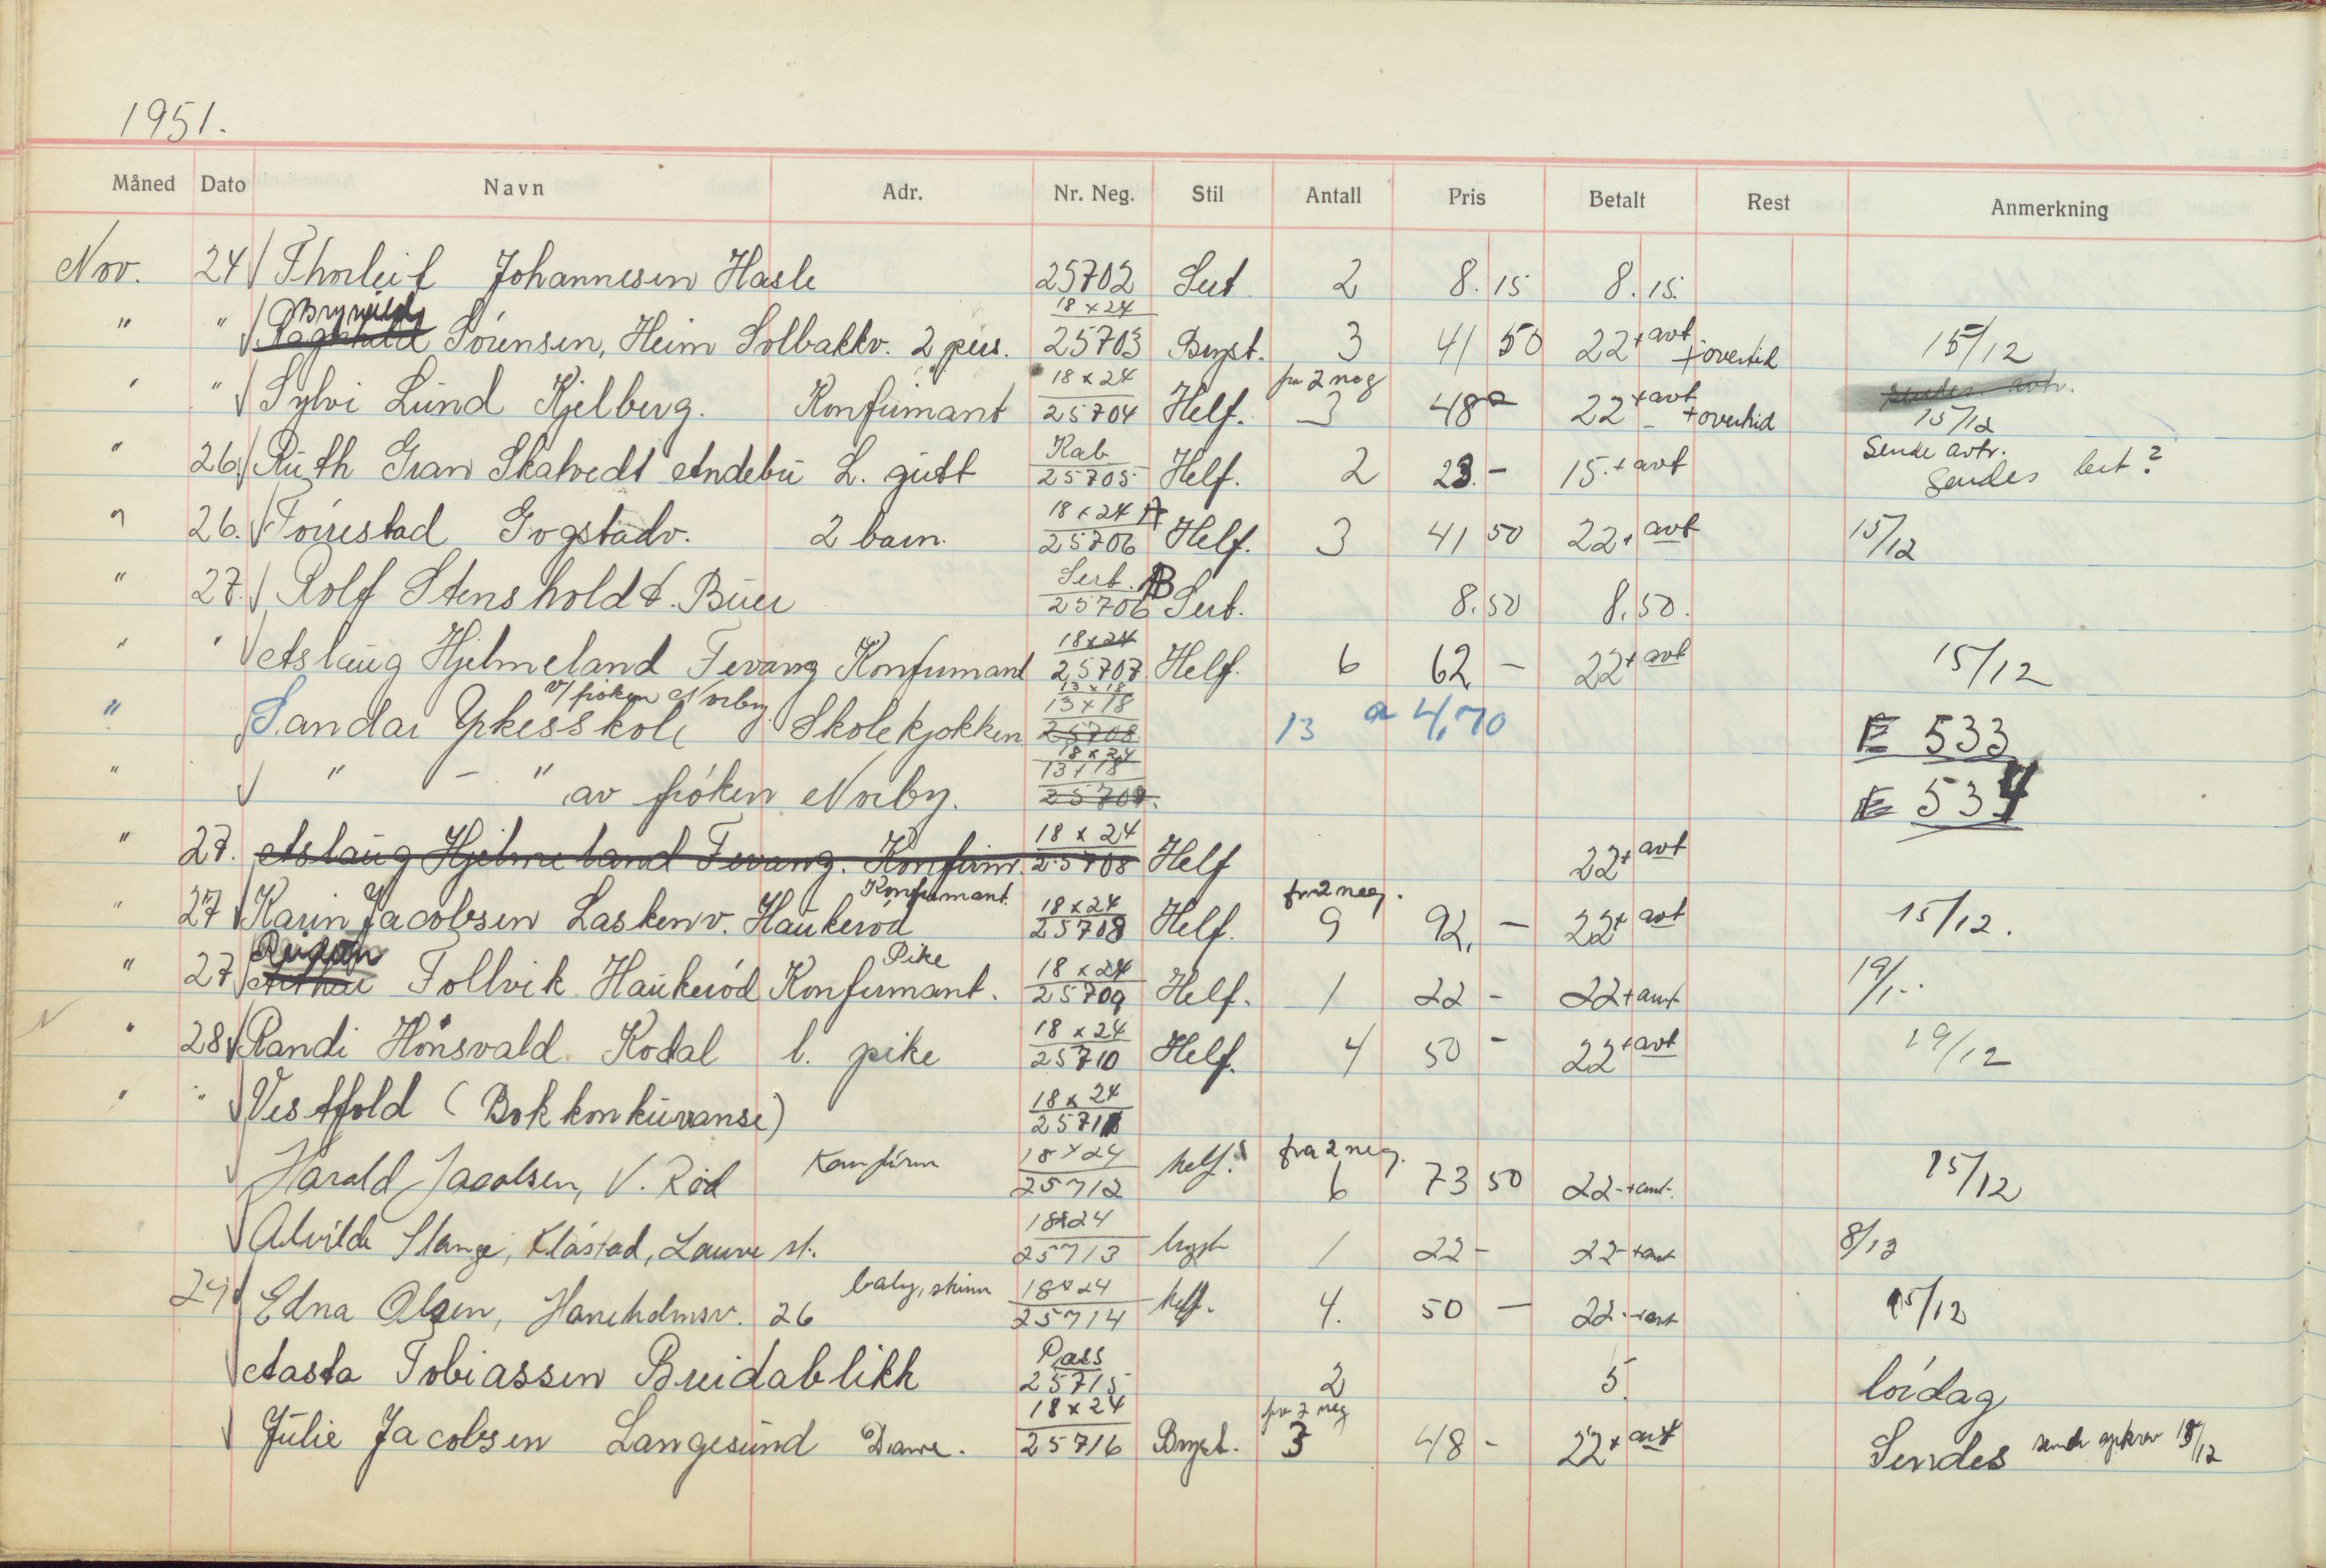 1951.
Måned Dato Navn Adr. Nr. Neg. Stil Antall Pris Betalt Rest Anmerkning
Nov. 24 Thorleif Johannesen Hasle 25702 Sert 2 8.15 8.15.
" " Brynhild Sörensen, Heim Solbakkv. 2 pers. 18x24 25703 Bryst. 3 41 50 22+avt +overtid 15/12
" " Sylvi Lund Kjelberg. Konfirmant 18x24 25704 Helf. fra 2 neg 3 48- 22+avt +overtid 15/12
" 26. Ruth Gran Skatvedt Andebu L. gutt Kab 25705 Helf. 2 23.- 15.+avt Sende avtr. Sendes
" 26. Torrestad Gogstadv. 2 barn. 18x24 A 25706 Helf. 3 41 50 22+avt 15/12
" 27. Rolf Stensholdt. Buer Sert. B 25706 Sert. 8.50 8.50.
" " Aslaug Hjelmeland Fevang Konfirmant 18x24 25707 Helf. 6 62 - 22+avt 15/12
" Sandar Yrkesskole v/ frøken Norby Skolekjøkken 13x18 13x18 25708 13 a 4,70 E 533
" " - " av frøken Norby. 18x24 13x18 E 534
" 27. Aslaug Hjelmeland Fevang. Konfirm. 18x24 25708 Helf 22+avt
" 27 Karin Jacobsen Laskenv. Haukerød Konfirmant. 18x24 25708 Helf. fra 2 neg. 9 92,- 22+avt 15/12.
" 27 Tollvik Haukerød Pike Konfirmant. 18x24 25709 Helf. 1 22 - 22+avt 19/1..
" 28 Randi Hønsvald. Kodal l. pike 18x24 25710 Helf. 4 50 - 22+avt 19/12
" " Vestfold (Bok konkurranse) 18x24 25711
Harald Jacobsen, V. Rød Konfirm 18x24 25712 helf. fra 2 neg. 6 73 50 22-+avt. 15/12
Alvilde Stange, Klåstad, Lauve st. 18x24 25713 bryst 1 22- 22-+avt 8/12
29 Edna Olsen, Haneholmsv. 26 baby, skinn 18x24 25714 helf. 4. 50 - 22-+avt 15/12
Aasta Tobiassen Breidablikk Pass 25715 2 5. lördag
Julie Jacobsen Langesund Dame. 18x24 25716 Bryst. fra 2 neg 3 48 - 22+avt Sendes